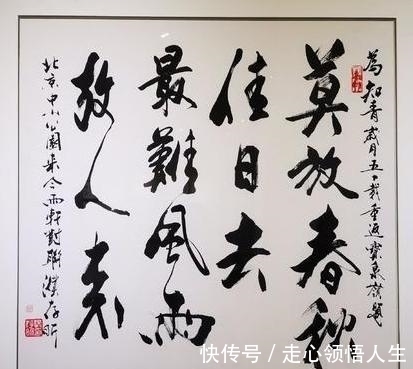 為知青歲月五十載重返寶泉嶺題
莫放春秋
佳日去
最難風雨
故人来
北京中山公園来今雨軒對聯濮存昕
快传号 / 走心领悟人生